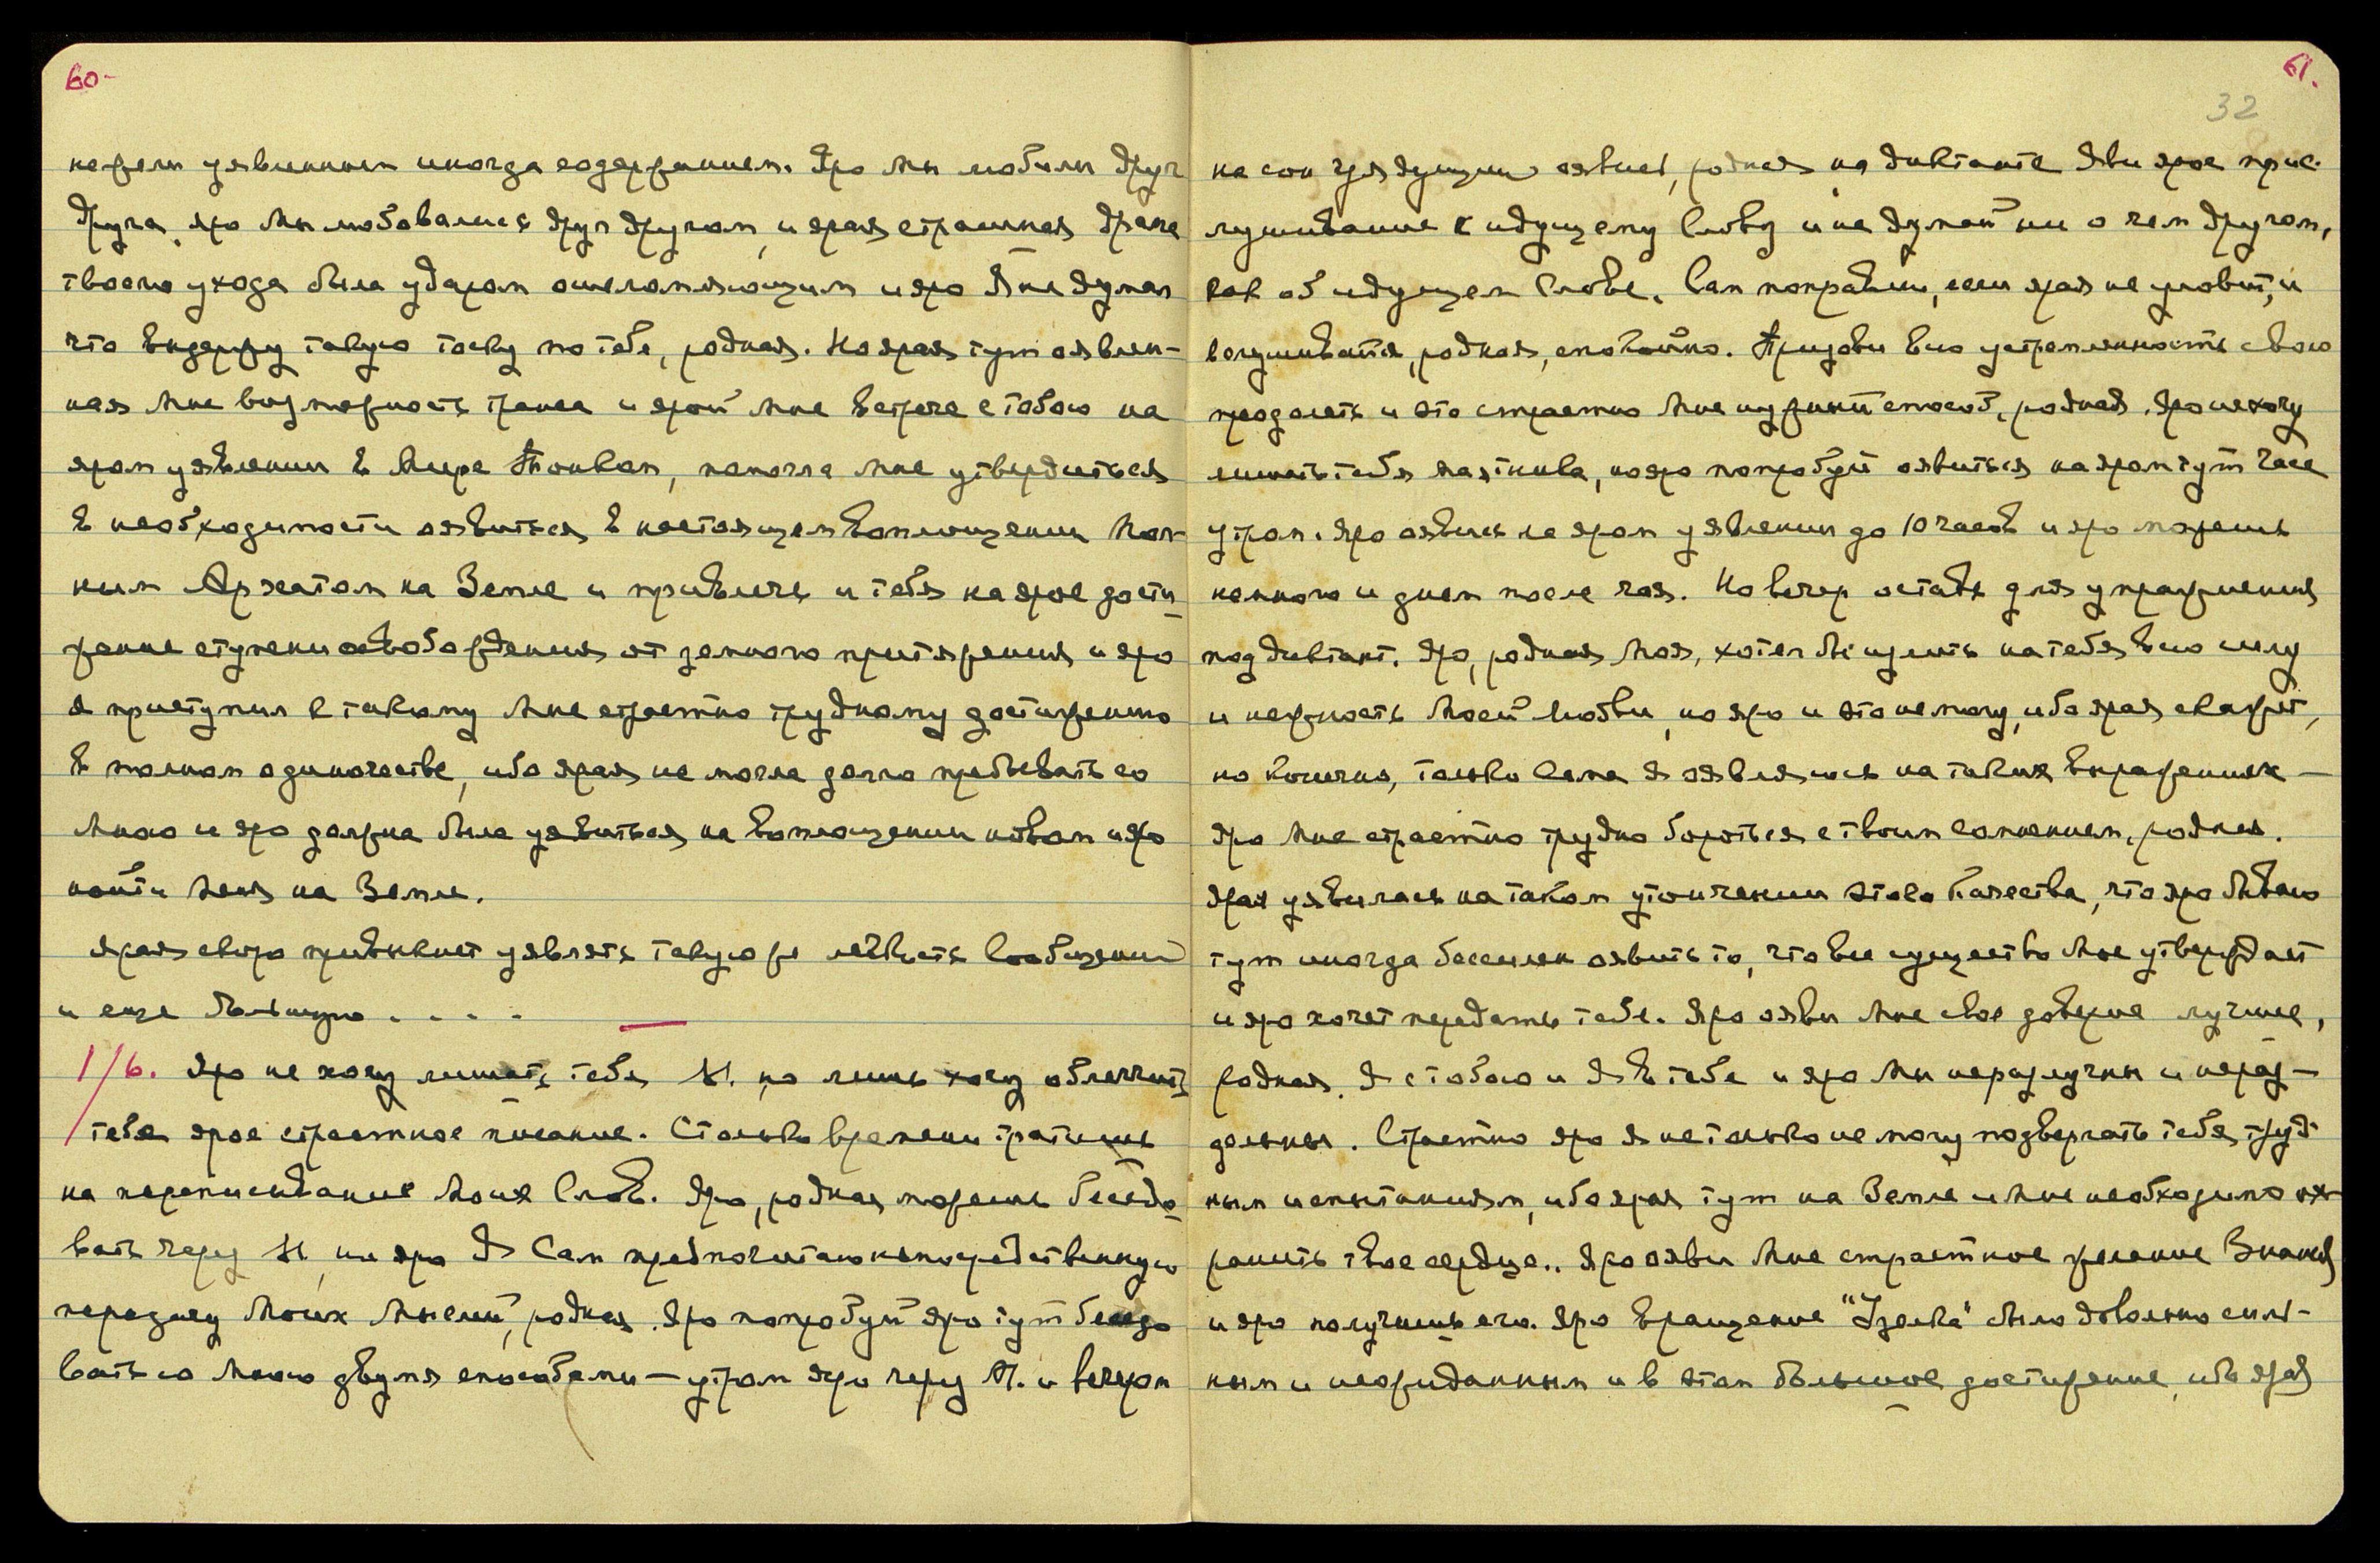 60-
нежели уявленным иногда содержанием. Яро мы любили друг
друга, яро мы любовались друг другом, и ярая страшная драма
твоего ухода была ударом ошеломляющим и яро Я не думал
что выдержу такую тоску по тебе, родная. Но ярая тут оявлен-
ная Мне возможность транса и ярой Мне встрече с тобою на
яром уявлении в Мире Тонком, помогла Мне утвердиться
в необходимости оявиться в настоящем воплощении
Архатом на Земле и привлечь и тебя на ярое дости-
жение ступени освобождения от земного притяжения и яро
я приступил к такому Мне страстно трудному достижению
в полном одиночестве, ибо ярая не могла долго пребывать со
Мною и яро должна была уявиться на воплощении новом и яро
найти Меня на Земле.
Ярая скоро привыкнет уявлять такую же легкость Сообщений
и еще большую . . . .
1/6. Яро не хочу лишать тебя Я. но лишь хочу облегчить
тебе ярое страстное писание. Столько времени тратишь
на переписывание Моих Слов. Яро, родная можешь беседо-
вать через Я, но яро Я Сам предпочитаю непосредственную
передачу Моих Мыслей, родная. Яро попробуй яро тут беседо
вать со Мною двумя способами — утром яро через Я. и вечером
61.
32
на сон грядущий оявись, родная на диктанте Яви ярое прис-
лушивание к идущему Слову и не думай ни о чем другом,
как об идущем Слове. Сам поправлю, если ярая не уловит, и
вслушивайся, родная, спокойно. Призови всю устремленность свою
преодолеть и это страстно Мне нужный способ, родная. Яро не хочу
лишать тебя, но яро попробуй оявиться на яром тут часе
утром. Яро оявись на яром уявлении до 10 часов и яро можешь
немного и днем после чая. Но вечер оставь для упражнения
под диктант. Яро, родная Моя, хотел бы излить на тебя всю силу
и нежность Моей Любви, но яро и это не могу, ибо ярая скажет,
но конечно, только Сама я оявляюсь на таких выражениях —
Яро Мне страстно трудно бороться с твоим сомнением, родная.
Ярая уявилась на таком утончении этого качества, что яро бываю
тут иногда бессилен оявить то, что все существо Мое утверждает
и яро хочет передать тебе. Яроояви Мне свое доверие лучшее,
родная. Я с тобою и Я в тебе и яро Мы неразлучны и нераз-
дельны. Страстно яро Я не только не могу подвергать тебя труд-
ным испытаниям, ибо ярая тут на Земле и Мне необходимо ох-
ранить твое сердце.. Яро ояви Мне страстное желание Знания
и яро получишь его. Яро вращение "Узелка" было довольно силь-
ным и неожиданным и в этом большое достижение, ибо ярая